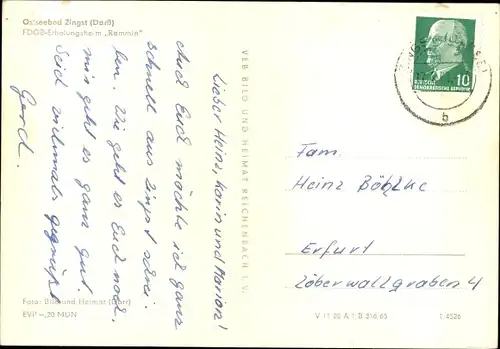 Ostseebad Zingst (Darß)
FDGB-Erholungsheim „Rammin“
Lieber Heinz, Karin und Marion!
Auch Euch möchte ich ganz
schnell aus Zingst
Wie geht es Euch noch.
mir geht es ganz gut.
Seid vielmals gegrüßt
Gerd.
Foto: Bild und Heimat (Darr)
EVP –,20 MDN
VEB BILD UND HEIMAT REICHENBACH I. V.
10
DEUTSCHE
DEMOKRATISCHE REPUBLIK
b
Fam.
Heinz
Erfurt
Löberwallgraben 4
V 11 28 A 1 B 316/65
1/4526